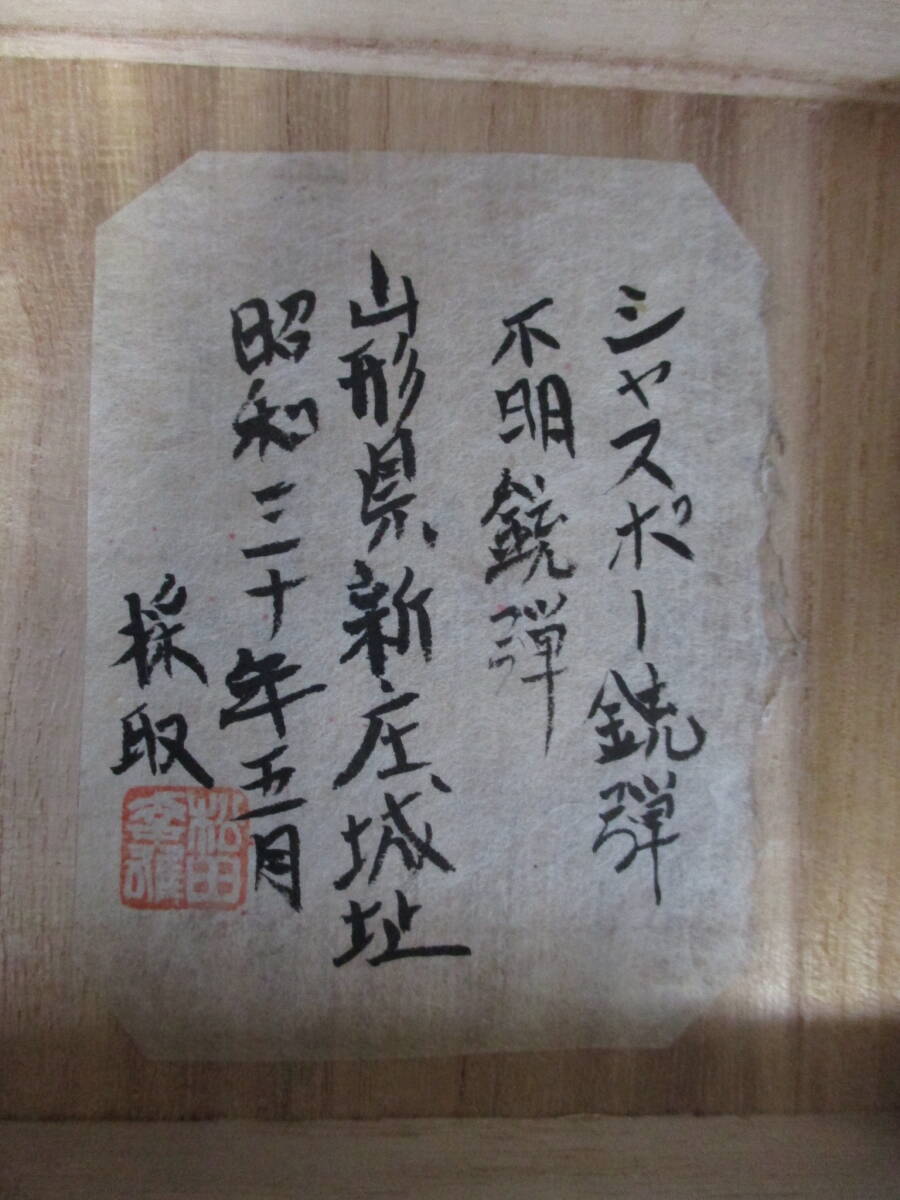 シャスポー銃弾
不明銃弾
山形県新庄城址
昭和三十年五月
採取
松田